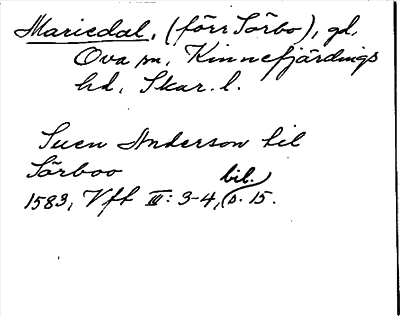 Mariedal, (förr Sörbo), gd,
Ova sn, Kinnefjärdings
hd, Skar. l.
Suen Anderson til
Sörboo
1583, Vff III: 3-4, (bil.) s. 15.